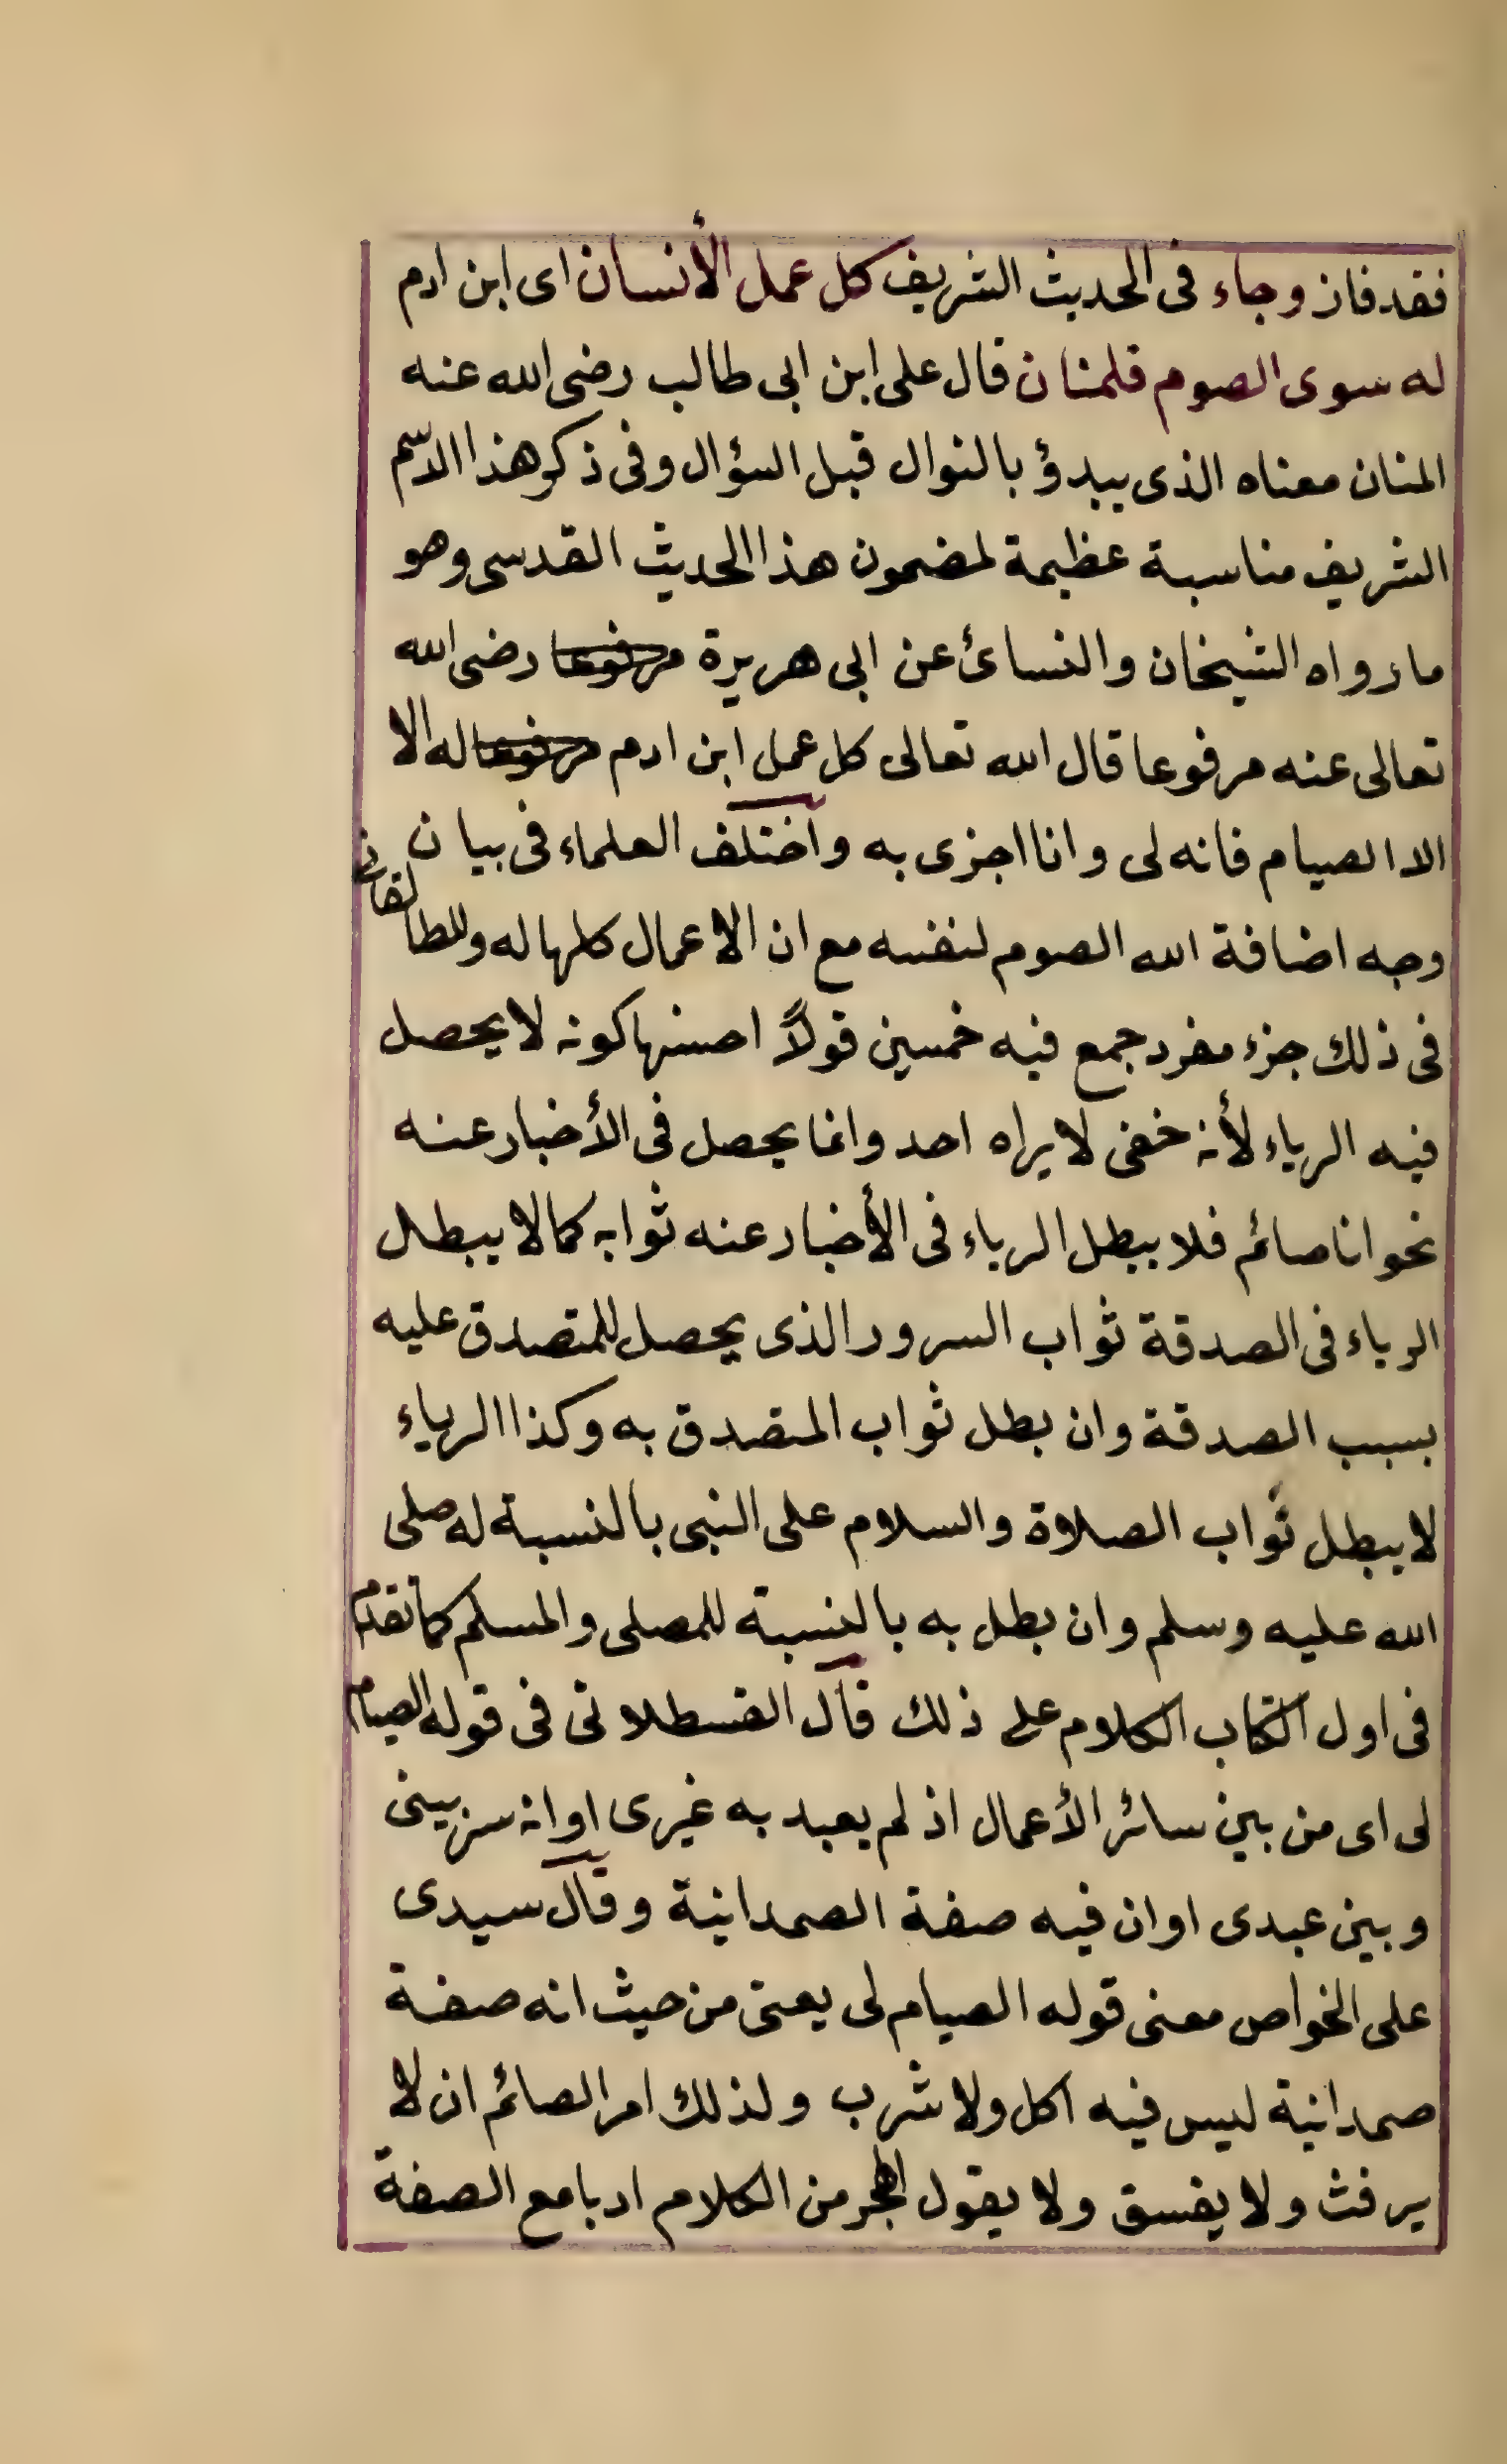 فقد فاز وجاء فى الحديث الشريف كل عمل الأنسان اى ابن ادم
له سوى الصوم فلمنان قال على ابن ابى طالب رضى الله عنه
المنان معناه الذى يبدؤ بالنوال قبل السؤال وفى ذكر هذا الاسم
الشريف مناسبة عظيمة لمضمون هذا الحديث القدسى وهو
ما رواه الشيخان والنسائ عن ابى هريرة مرفوعا رضى الله
تعالى عنه مرفوعا قال الله تعالى كل عمل ابن ادم مرفوعا له الا
الا الصيام فانه لى وانا اجزى به واختلف العلماء فى بيان
وجه اضافة الله الصوم لنفسه مع ان الاعمال كلها له وللطالقانى
فى ذلك جزء مفرد جمع فيه خمسين قولاً احسنها كونه لا يحصل
فيه الرياء لأنه خفى لا يراه احد وانما يحصل فى الأخبار عنه
نحو انا صائم فلا يبطل الرياء فى الأخبار عنه ثوابه كما لا يبطل
الرياء فى الصدقة ثواب السرور الذى يحصل للمتصدق عليه
بسبب الصدقة وان بطل ثواب المتصدق به وكذا الرياء
لا يبطل ثواب الصلاة والسلام على النبى بالنسبة له صلى
الله عليه وسلم وان بطل به بالنسبة للمصلى والمسلم كما تقدم
فى اول الكتاب الكلام على ذلك قال القسطلانى فى قوله الصيام
لى اى من بين سائر الأعمال اذ لم يعبد به غيرى او انه سر بينى
وبين عبدى او ان فيه صفة الصمدانية وقال سيدى
على الخواص معنى قوله الصيام لى يعنى من حيث انه صفة
صمدانية ليس فيه اكل ولا شرب ولذلك امر الصائم ان لا
يرفث ولا يفسق ولا يقول الهجر من الكلام ادبا مع الصفة